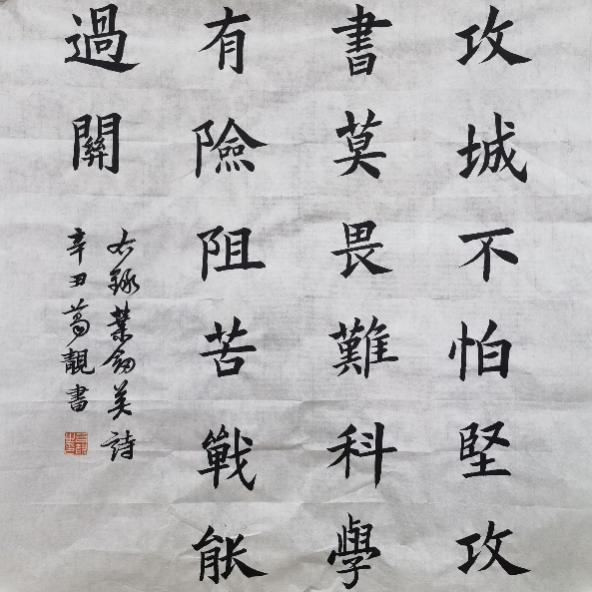 攻城不怕堅攻
書莫畏難科學
有險阻苦戰能
過關
右録葉劍英詩
辛丑葛靚書